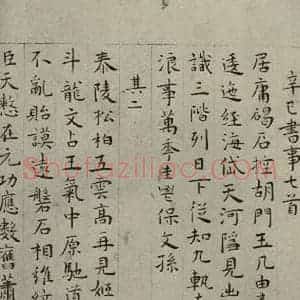 辛巳書事七首
居庸碣石捍胡門玉几由
逶迤經海岱天河隱見出
識三階列日下從知九軌
浪事萬季保文孫
其二
泰陵松柏五雲高再見姬
斗龍文占王氣中原馳道
不亂貽謨磐石相維
臣天憖在元功應數舊蕭